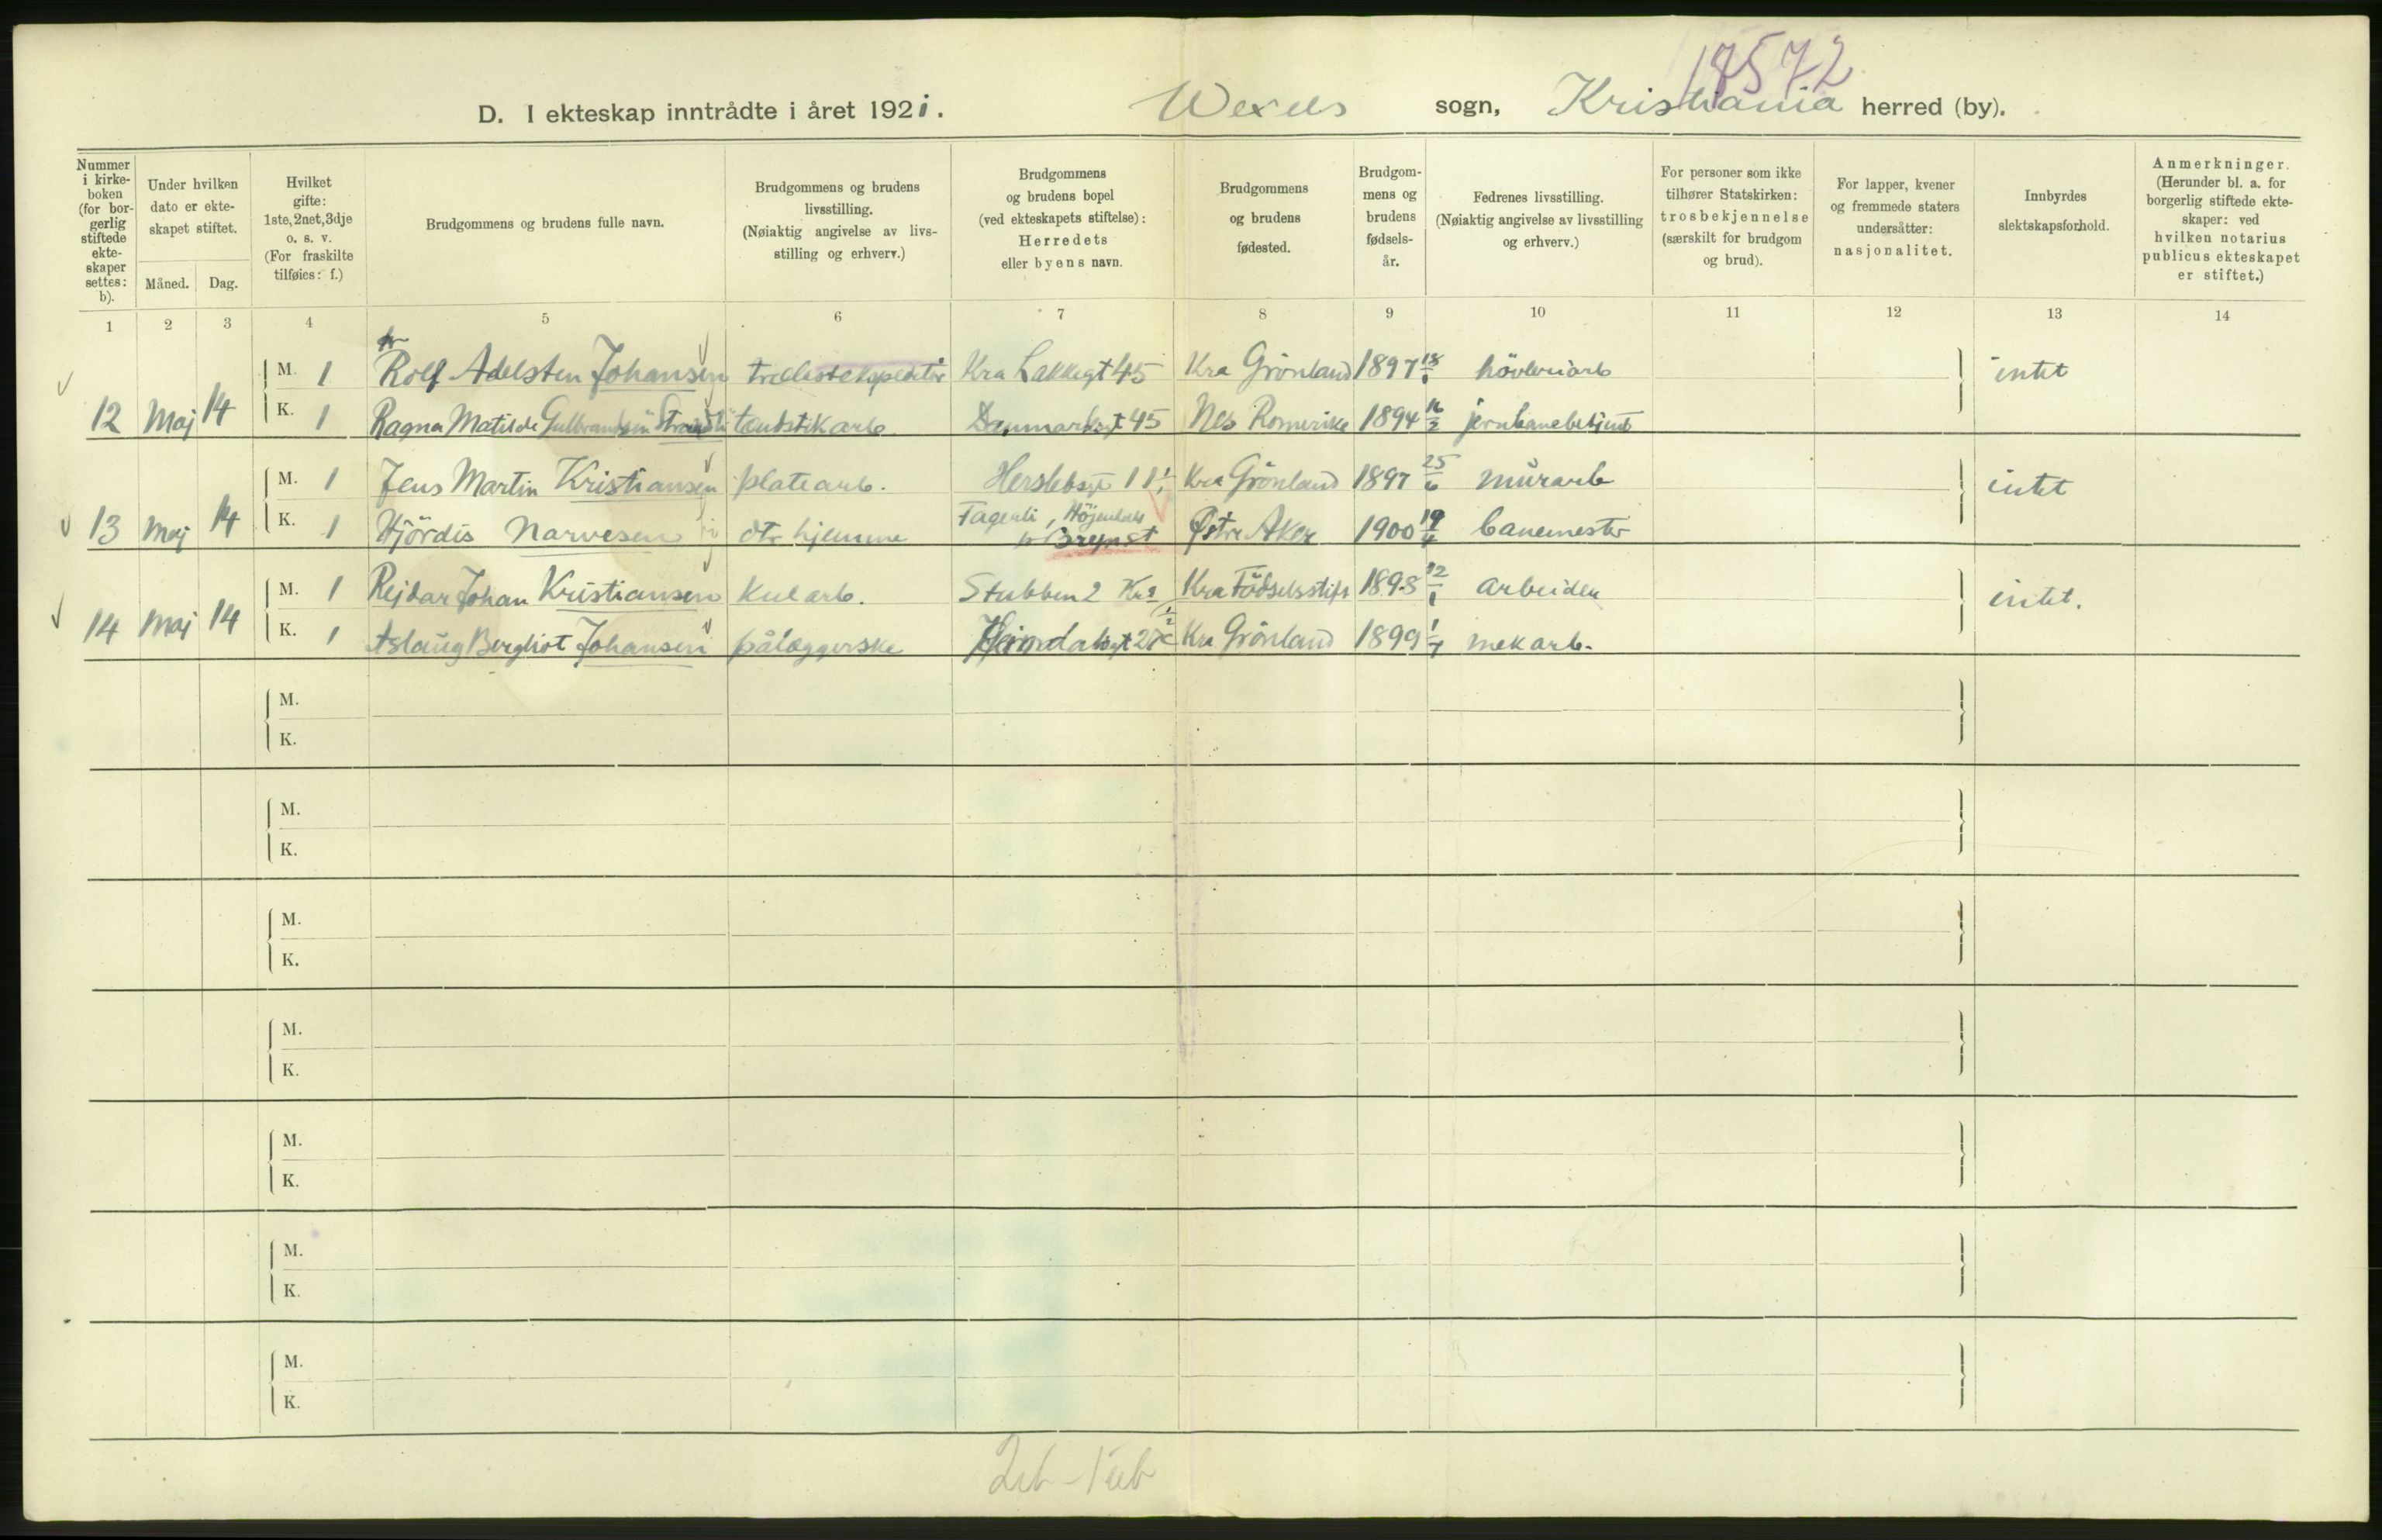 18572
D. I ekteskap inntrådte i året 1921. Wexels sogn, Kristiania herred (by).
Nummer i kirke- boken (for bor- gerlig stiftede ekte- skaper settes: b).
Under hvilken dato er ekte- skapet stiftet.
Måned. Dag.
Hvilket gifte: 1ste, 2net, 3dje o. s. v. (For fraskilte tilføies: f.)
Brudgommens og brudens fulle navn.
Brudgommens og brudens livsstilling. (Nøiaktig angivelse av livs- stilling og erhverv.)
Brudgommens og brudens bopel (ved ekteskapets stiftelse): Herredets eller byens navn.
Brudgommens og brudens fødested.
Brudgom- mens og brudens fødsels- år.
Fedrenes livsstilling. (Nøiaktig angivelse av livsstilling og erhverv.)
For personer som ikke tilhører Statskirken: trosbekjennelse (særskilt for brudgom og brud).
For lapper, kvener og fremmede staters undersåtter: nasjonalitet.
Innbyrdes slektskapsforhold.
Anmerkninger. (Herunder bl. a. for borgerlig stiftede ekte- skaper: ved hvilken notarius publicus ekteskapet er stiftet.)
1 2 3 4 5 6 7 8 9 10 11 12 13 14
M. 1 Rolf Adelsten Johansen Kra Lakkegt 45 Kra Grönland 1897 18/1 høvleriarb intet
12 Maj 14 K. 1 Ragna Matilde Gulbrandsen tændstikarb. Danmarksgt 45 Nes Romerike 1894 16/2 jernbanebetjent
M. 1 Jens Martin Kristiansen platearb. Herslebsgt 11 Kra Grönland 1897 25/6 murarb intet
13 Maj 14 K. 1 Hjördis Narvesen dtr hjemme Fagerli, p Brynst Østre Aker 1900 19/4 banemester
M. 1 Rejdar Johan Kristiansen kularb. Stubben 2 Kra Kra Födselsstift 1898 12/1 arbeider intet.
14 Maj 14 K. 1 Aslaug Bergliot Johansen pålæggerske Heimdalsgt Kra Grönland 1899 1/7 mekarb.
M.
K.
M.
K.
M.
K.
M.
K.
M.
K.
M.
K.
M.
K.